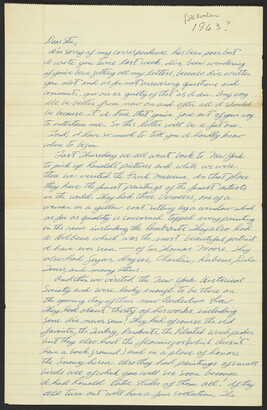 December
1963?
Dear Stu,
I'm sorry my correspondence has been poor but
I wrote you twice last week. I've been wondering
if you've been getting all my letters, because I've written
you alot and as for not answering questions and
comments, you are as guilty of that as I am. They may
all be better from now on and after all it should
be because it is time that you've got out of your way
to entertain me. So this letter will be a fat one.
Lord, I have so much to tell you I hardly know
where to begin.
Last Thursday we all went back to New York
to pick up Randall's pictures and while we were
there we visited the Frick Museum. In that place
they have the finest paintings of the finest artists
in the world. They had three Vermeers, one of a
women in a yellow coat sitting by a window which
as far as quality is concerned topped every painting
in the room including the Rembrants. They also had
a Holbein which was the most beautiful portrait
I have ever seen — of Sir Thomas Moore. They
also had Goyas Chardin, Rubens,
and many others.
And then we visited the New York Historical
Society and were lucky enough to be there on
the opening day of their new Audubon show.
They had about thirty of his works including
some I've never seen. They had of course the old
favorites, the Turkey, the Pileated Woodpeckers
and they also had the flamingo which doesn't
have a background and in a place of honor
the Snowy heron. Also they had paintings of small
birds all of which you'll see soon because
I had Randall take slides of them all! If they
all turn out we'll have a fine collection. The